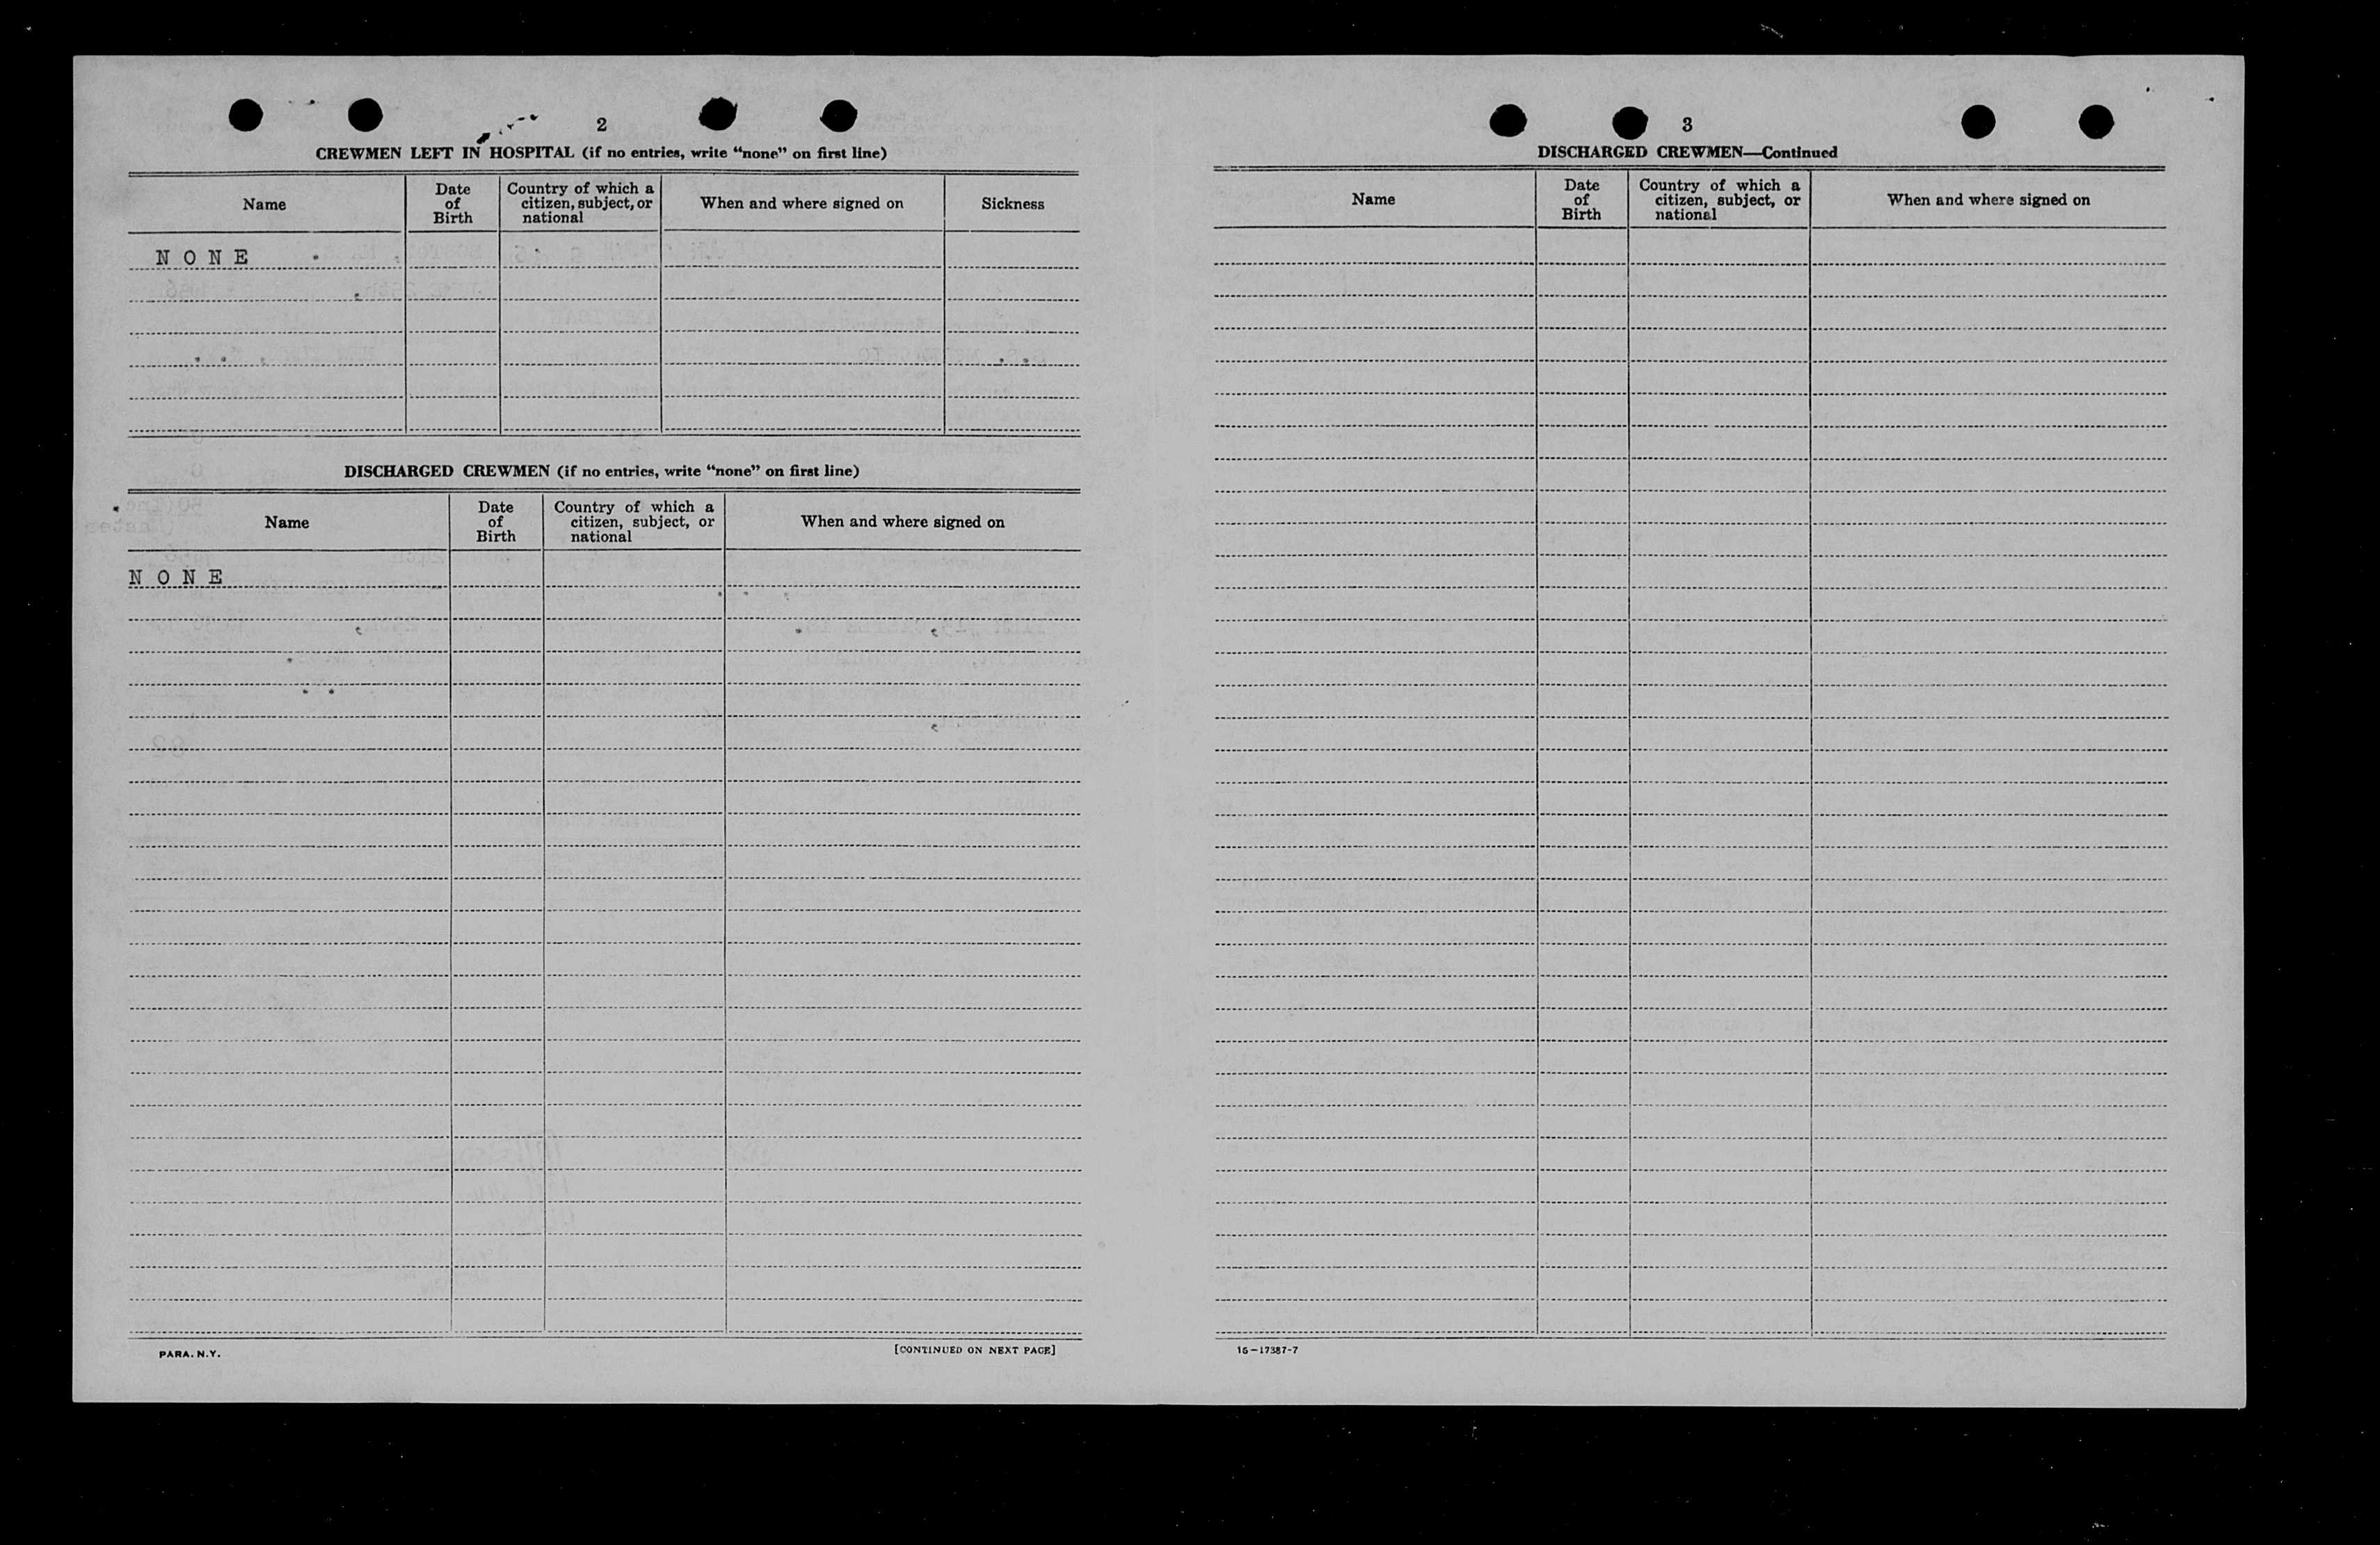 2
CREWMEN LEFT IN HOSPITAL (if no entries, write “none” on first line)
Name
Date of Birth
Country of which a citizen, subject, or national
When and where signed on
Sickness
N O N E
DISCHARGED CREWMEN (if no entries, write “none” on first line)
Name
Date of Birth
Country of which a citizen, subject, or national
When and where signed on
N O N E
PARA. N.Y.
[CONTINUED ON NEXT PAGE]
3
DISCHARGED CREWMEN—Continued
Name
Date of Birth
Country of which a citizen, subject, or national
When and where signed on
16—17387-7